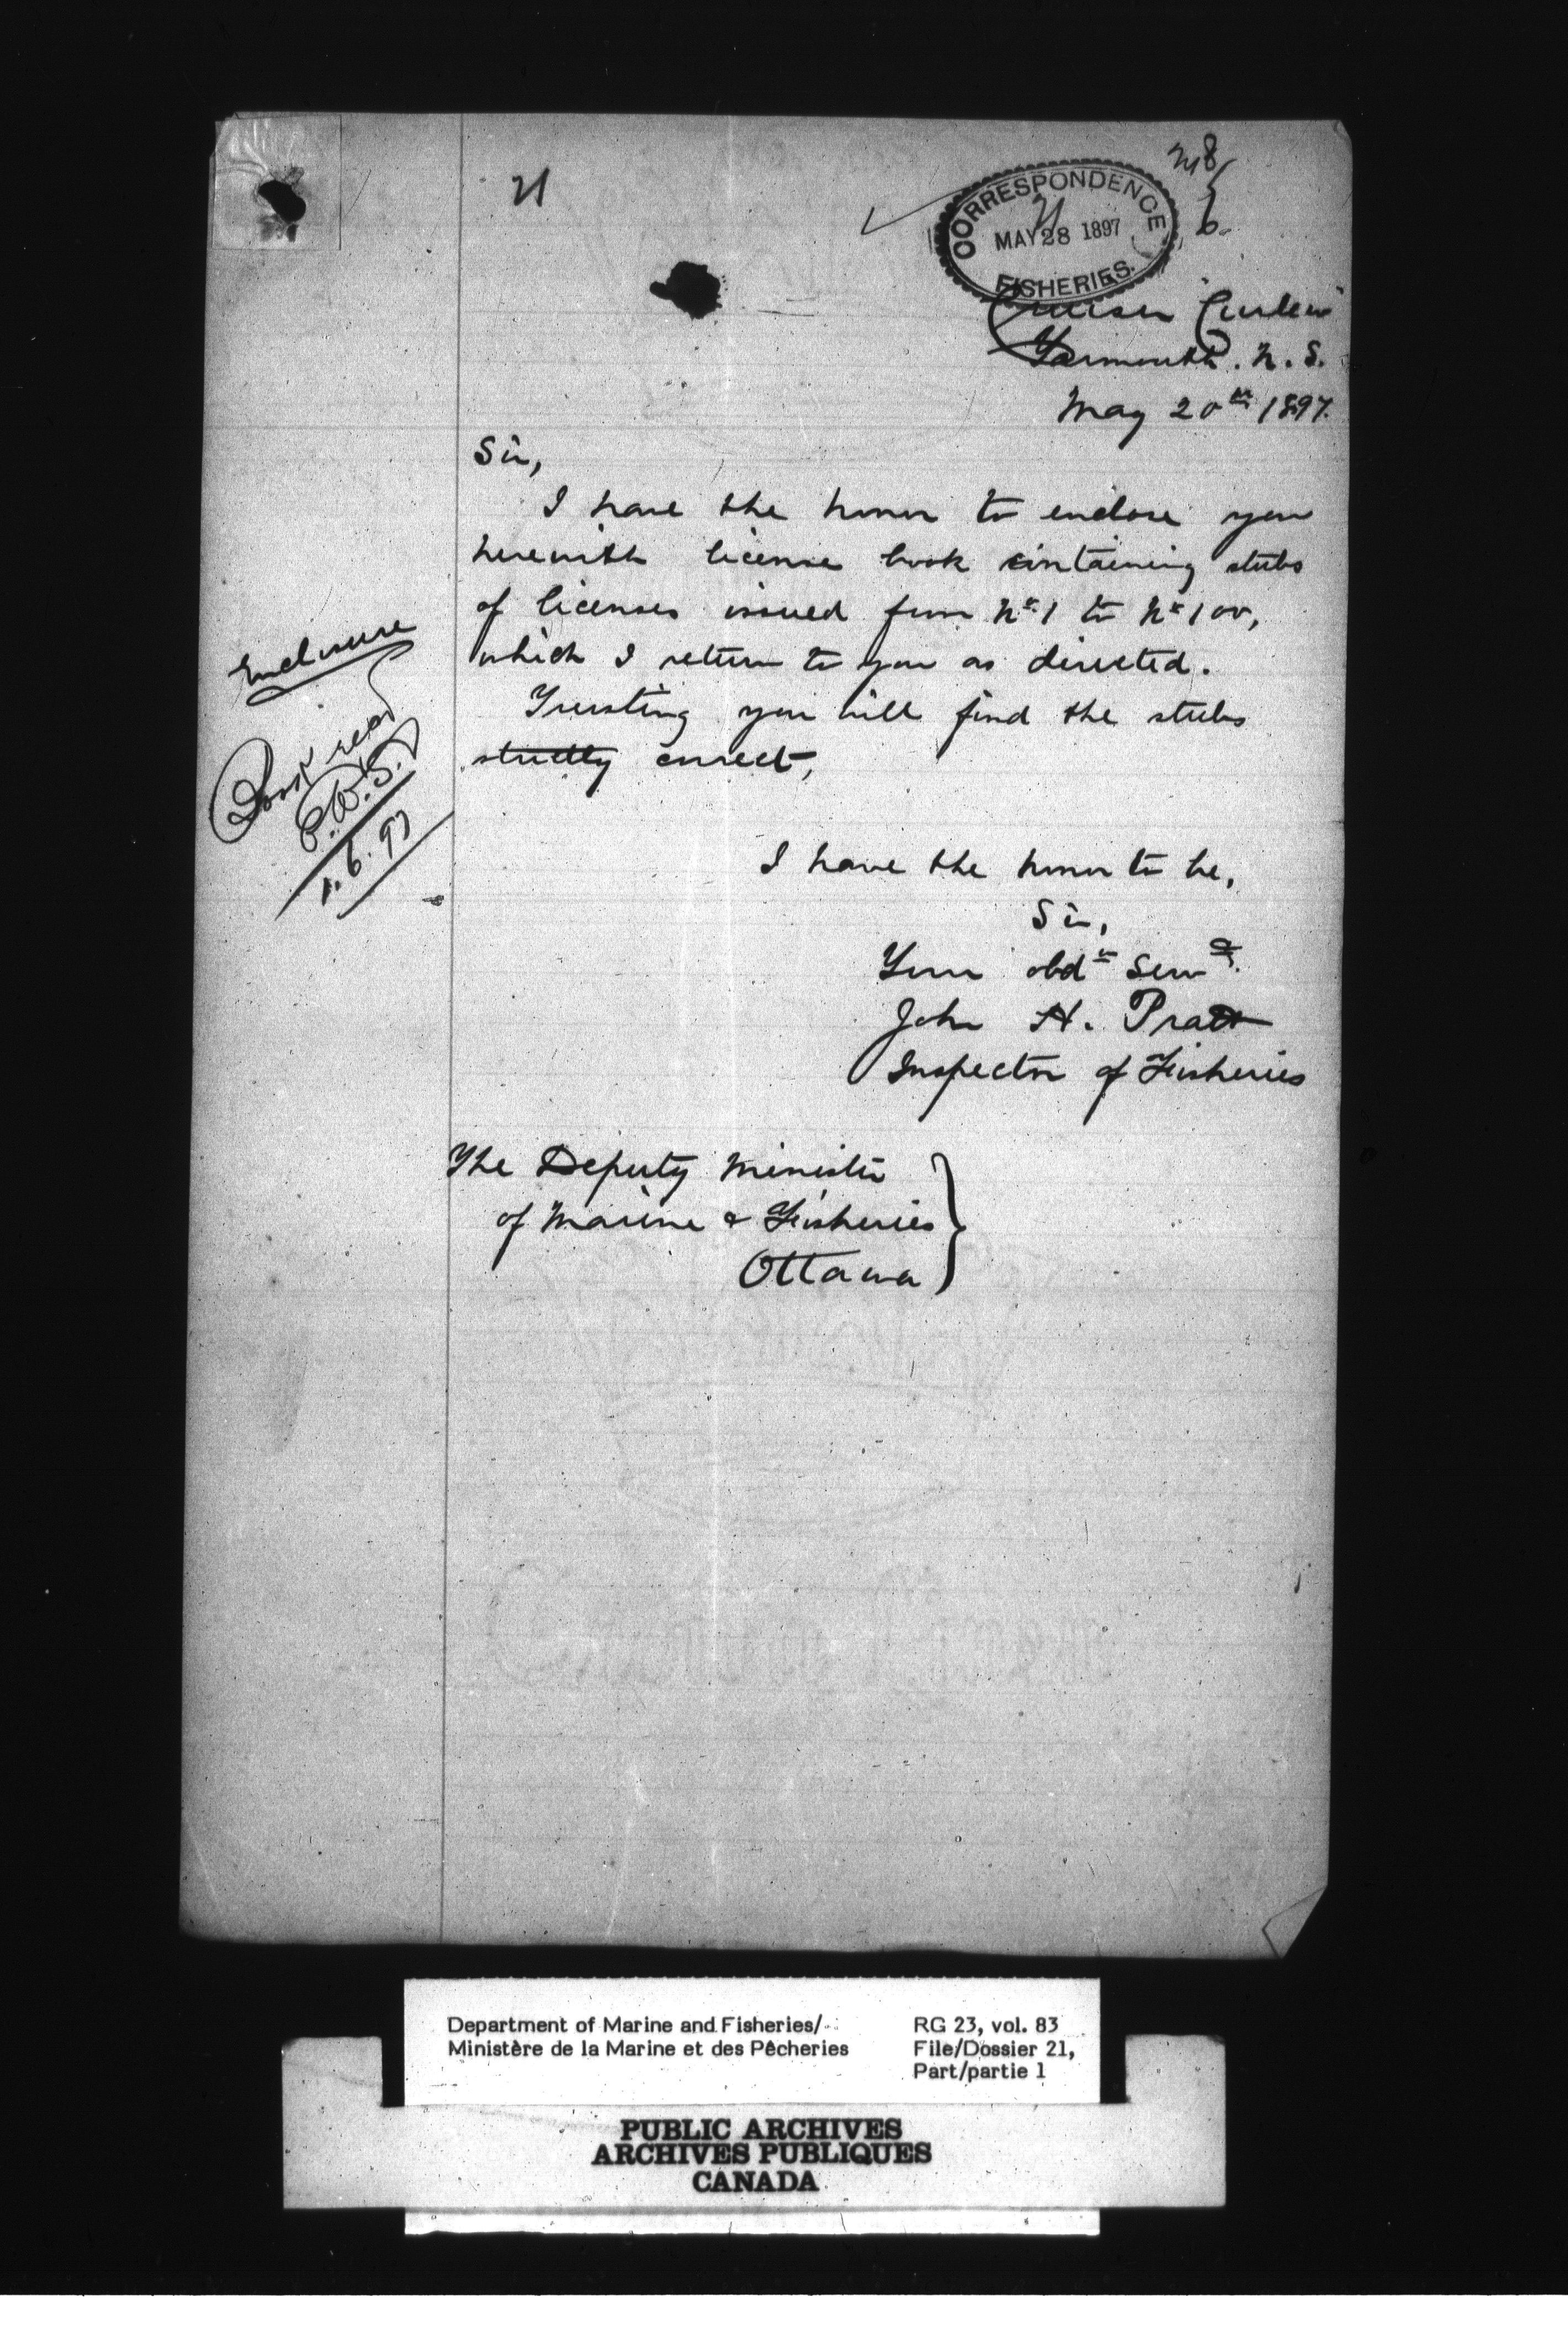 21
CORRESPONDENCE
21
MAY 28 1897
FISHERIES.
Cruiser "Curlew"
Yarmouth. N. S.
May 20th 1897.
Sir,
I have the honor to enclose you
herewith license book containing stubs
of licenses issued from No 1 to No 100,
which I return to you as directed.
Trusting you will find the stubs
strictly correct,
I have the honor to be,
Sir,
Your obdt Servt.
John H. Pratt
Inspector of Fisheries
The Deputy Minister
of Marine & Fisheries
Ottawa
Enclosure
Book recd
1.6.97
Department of Marine and Fisheries/
Ministère de la Marine et des Pêcheries
RG 23, vol. 83
File/Dossier 21,
Part/partie 1
PUBLIC ARCHIVES
ARCHIVES PUBLIQUES
CANADA